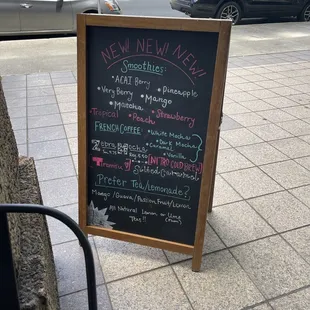 NEW! NEW! NEW!
Smoothies:
•ACAI Berry •Pineapple
•Very Berry •Mango
•Matcha
Tropical •Peach •Strawberry
FRENCH COFFEE •White Mocha
•Dark Mocha
Caramel
Vanilla
NITRO COLD BREW
Salted Caramel
Prefer Tea/Lemonade?
Mango/Guava/Passion Fruit/Lemon
All Natural Lemon or Lime